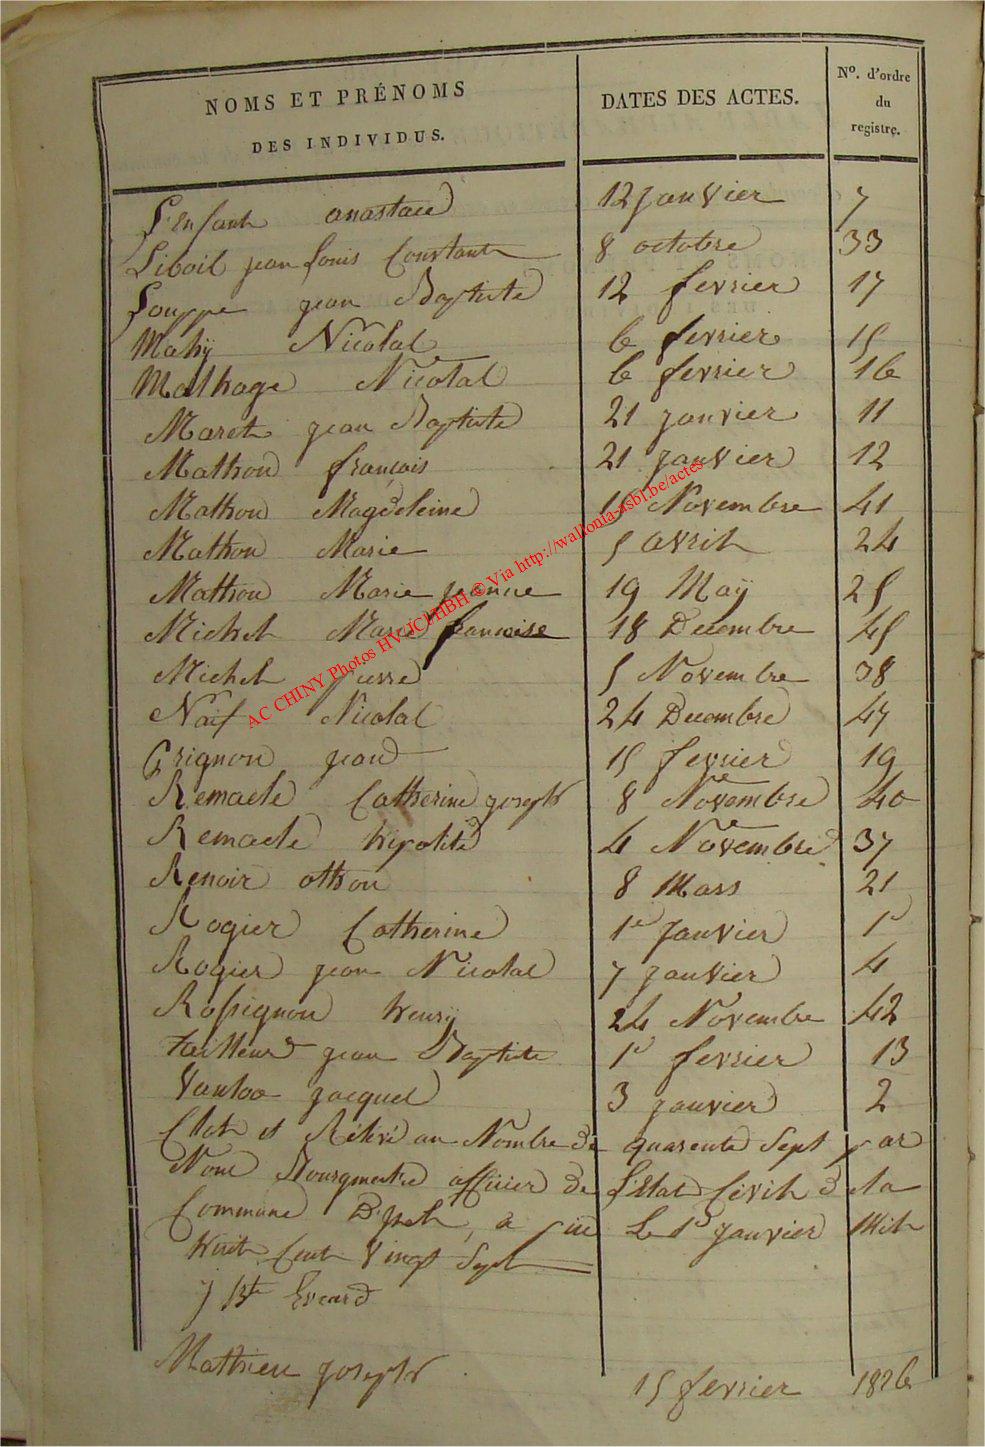 NOMS ET PRÉNOMS DES INDIVIDUS. DATES DES ACTES. No. d'ordre du registre.
L'Enfant anastace 12 Janvier 7
Liboil jean louis Constant 8 octobre 33
Louppe jean Baptiste 12 fevrier 17
Mahÿ Nicolal 6 fevrier 15
Malhage Nicolal 6 fevrier 16
Maret jean Baptiste 21 janvier 11
Mathou françois 21 janvier 12
Mathou Magdeleine 15 Novembre 41
Mathou Marie 5 avril 24
Mathou Marie jeanne 19 Maÿ 25
Michel Marie francoise 18 Decembre 45
Michel pierre 5 Novembre 38
Naif Nicolal 24 Decembre 47
Grignon jean 15 fevrier 19
Remacle Catherine joseph 8 Novembre 40
Remacle hipolite 4 Novembre 37
Renoir othon 8 Mars 21
Rogier Catherine 1er Janvier 1er
Rogier jean Nicolal 7 janvier 4
Rossignon henrÿ 24 Novembre 42
tailleur jean Baptiste 1er fevrier 13
Vanloo jacquel 3 janvier 2
Clot et Rélevé au Nombre de quarente Sept par
Nous Bourgmestre officier de L'Etat Civil de la
Commune D' à Le 1er Janvier Mil
huit Cent Vingt Sept
j Bte Evrard
Mathieu joseph 15 fevrier 1826
AC CHINY Photos HV-JCUHBH © Via http://wallonia-asbl.be/actes